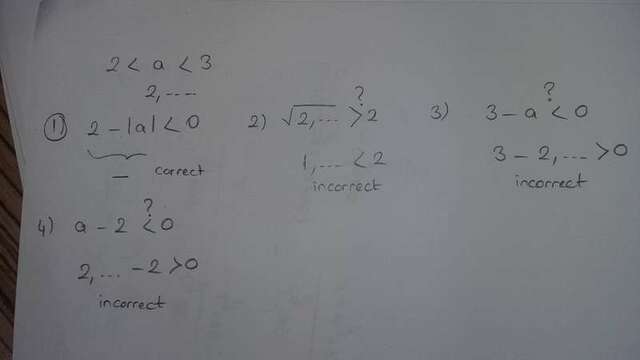 2 < a < 3
2, ....
① 2 - |a| < 0
— correct
2) √2, ... >? 2
1, ... < 2
incorrect
3) 3 - a <? 0
3 - 2, ... > 0
incorrect
4) a - 2 <? 0
2, ... - 2 > 0
incorrect